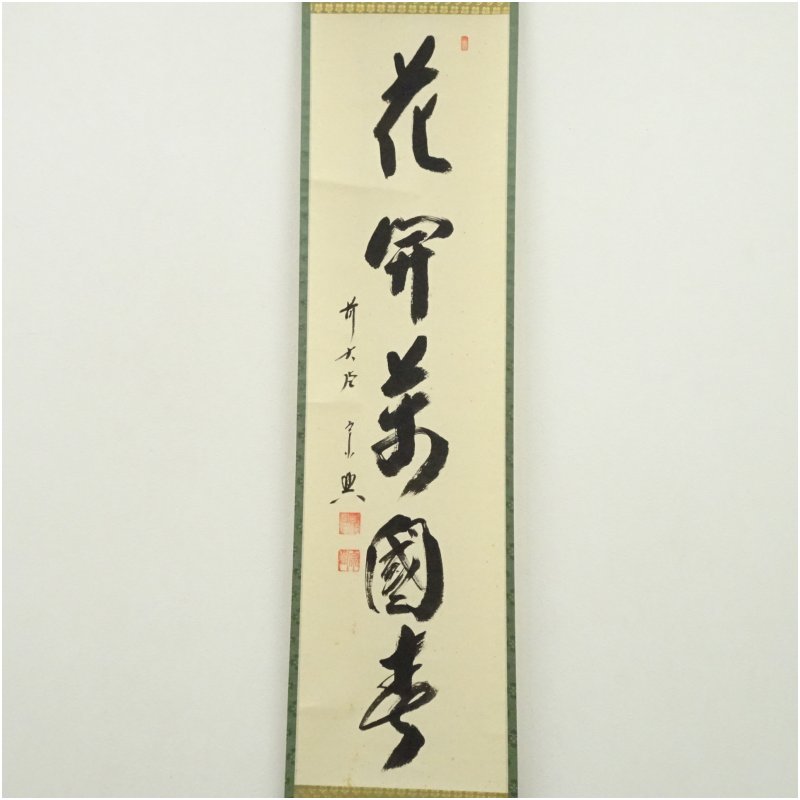 花開萬國春
前大徳 宗興